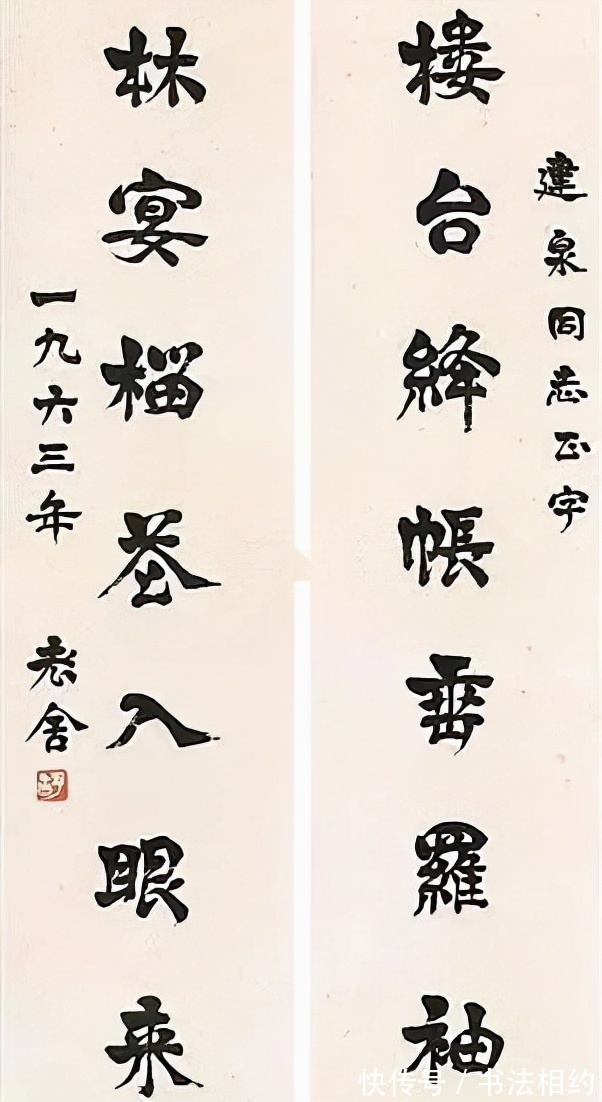 建泉同志正字
樓台絳帳垂羅袖
林宴榴芲入眼来
一九六三年 老舍
快传号 / 书法相约